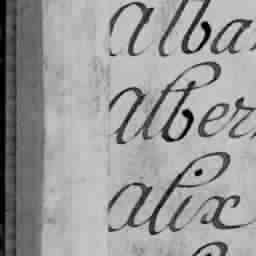 alba
alber
alix